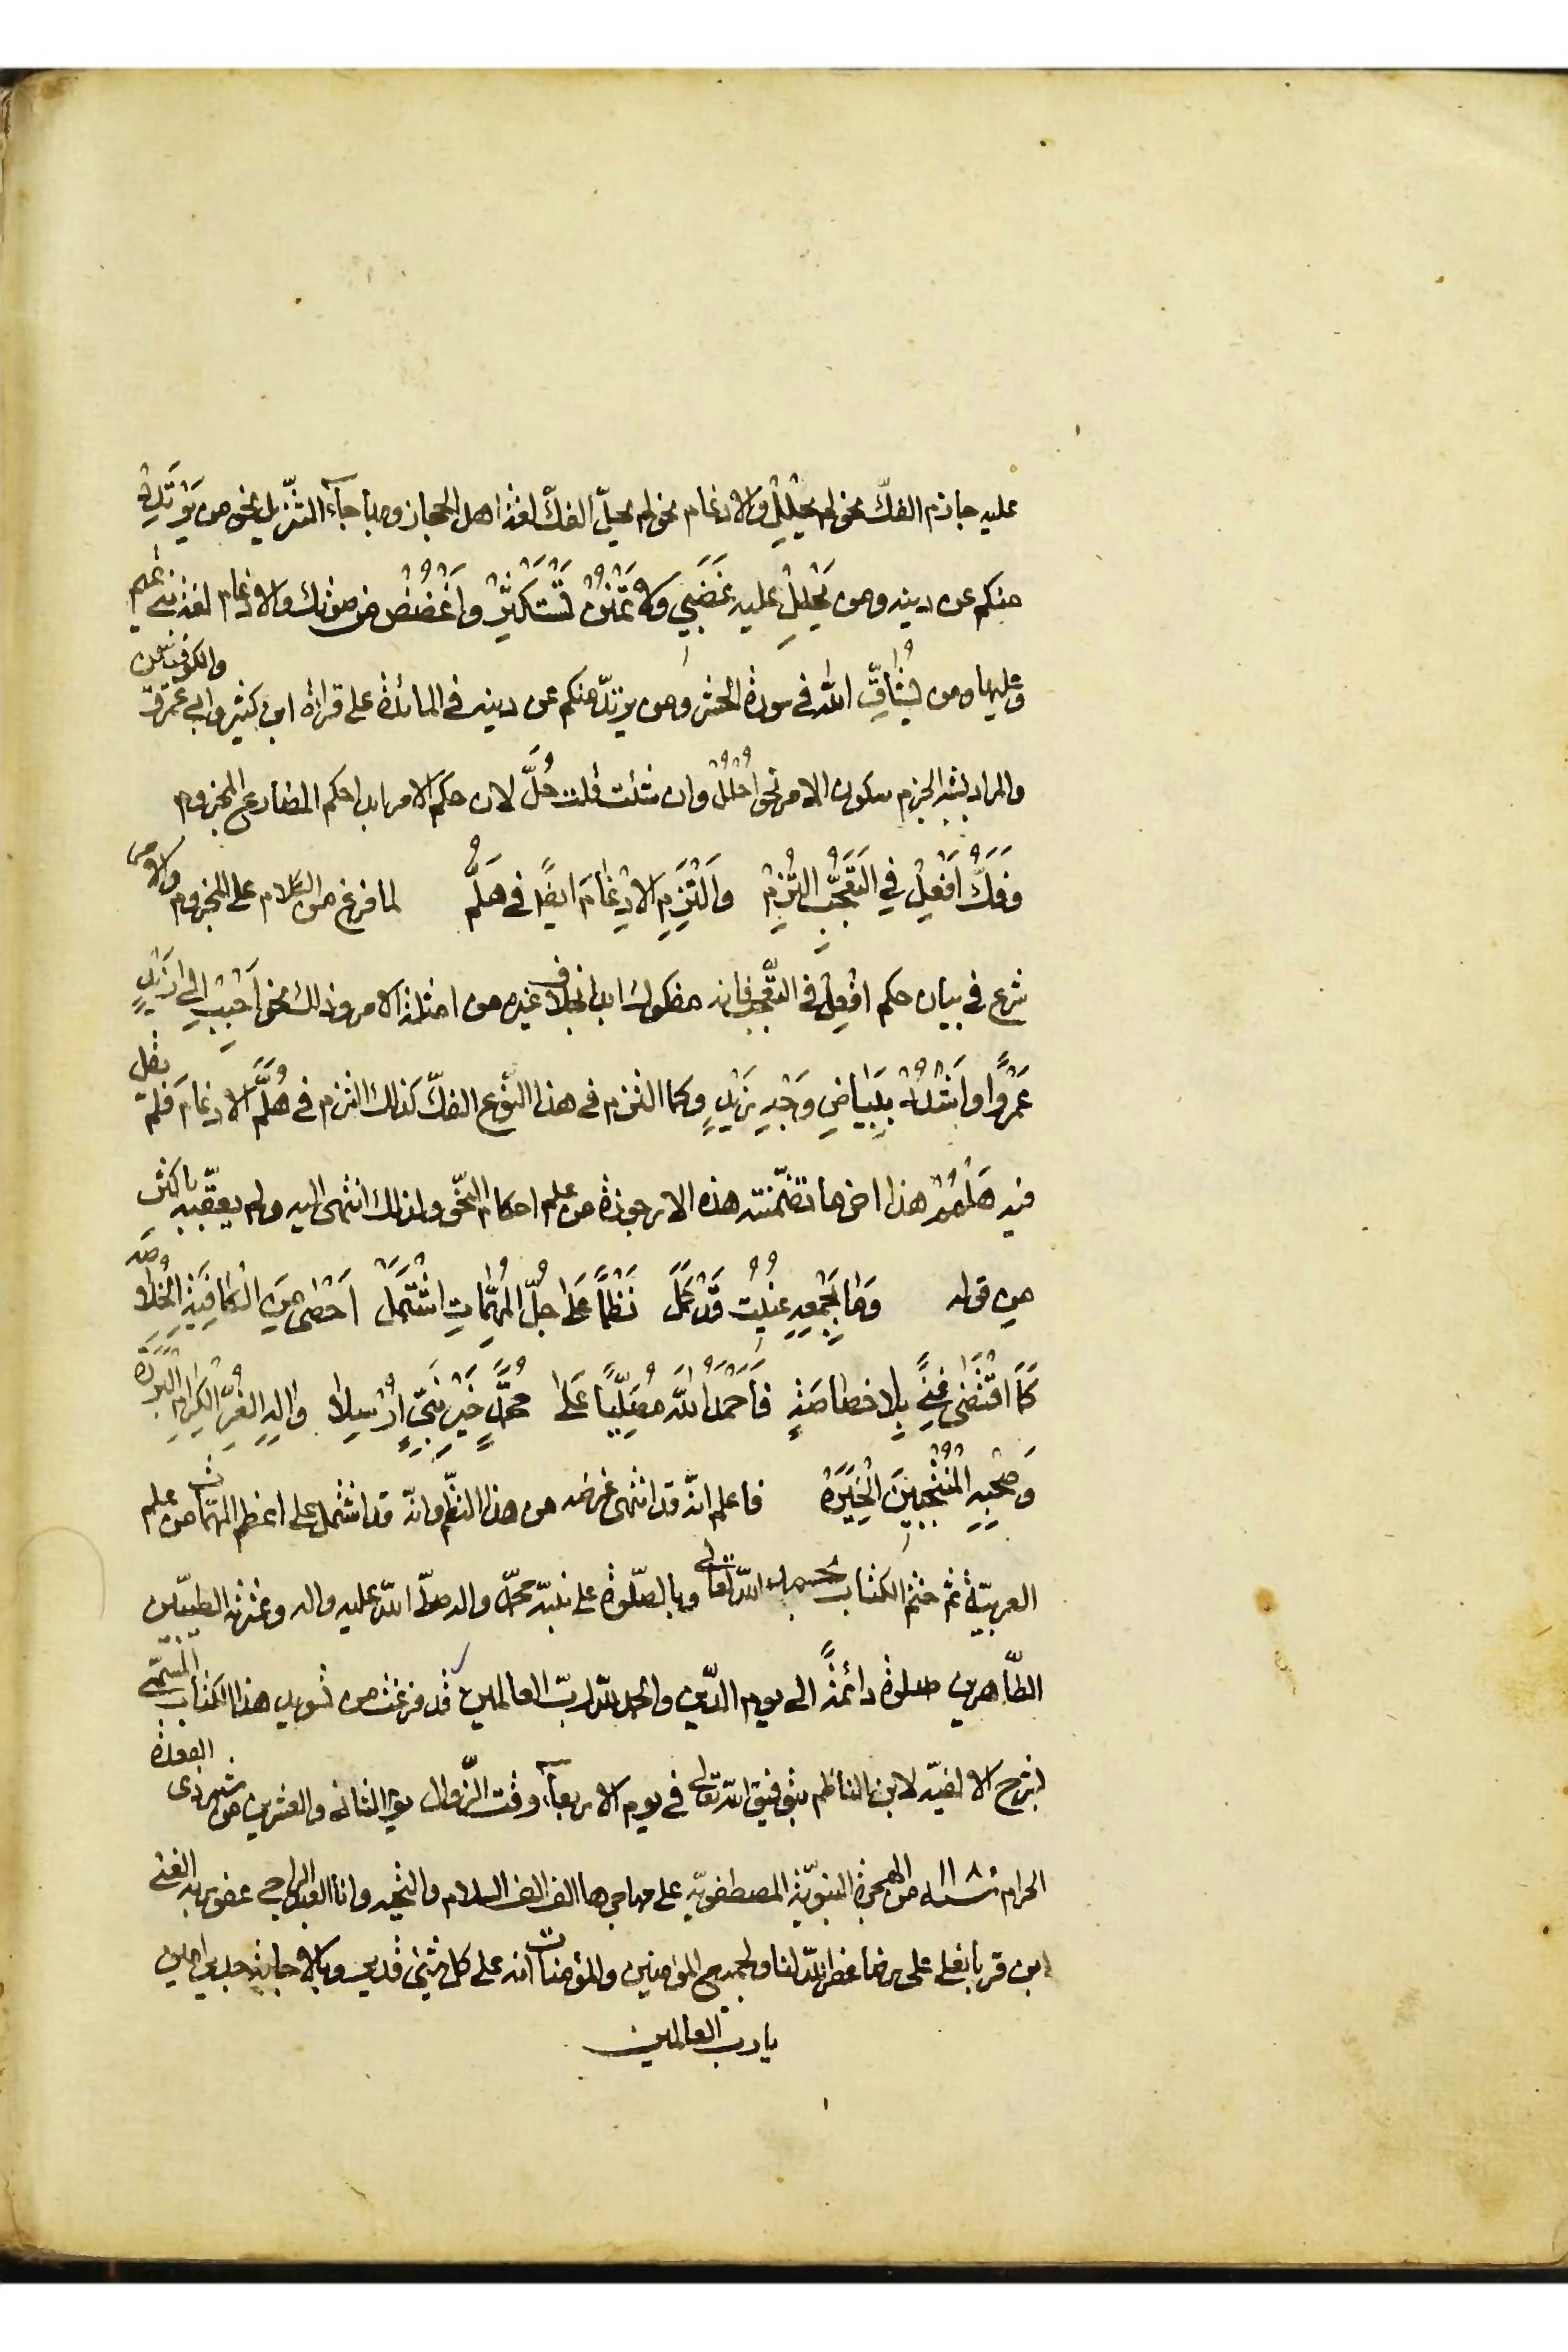 عليه جازم الفكّ نحو لم يحلل والادغام نحو لم يحلّ الفكّ لغة اهل الحجاز وبها جاء التنزيل نحو من يرتدد
منكم عن دينه ومن يَحْلِلْ عليه غَضَبي ولا تَمْنُنْ تَسْتَكْثِرُ واغْضُضْ من صوتك والادغام لغة بني تميم
وعليها ومن يُشاقِّ الله في سورة الحشر ومن يرتدّ منكم عن دينه في المائدة على قراءة ابن كثير وابي عمرو والكوفيين
والمراد بشبه الجزم سكون الامر نحو احلُلْ وان شئت قلت حُلَّ لان حكم الامر ابدا حكم المضارع المجزوم
وَفَكُّ اَفْعِلْ في التَعَجُّبِ الْتُزِمْ والْتُزِمَ الادْغامُ ايضًا في هَلُمْ لما فرغ من الكلام على المجزوم والامر
شرع في بيان حكم افْعِلْ في التعجّب فانه مفكوك ابدا بخلاف غيره من امثلة الامر وذلك نحو اَحْبِبْ الى زَيْدٍ
عَمْرًوا واَشْدِدْ بِبَيَاضِ وَجْهِ زَيْدٍ وكما التزم في هذا النوع الفكّ كذلك التزم في هَلُمَّ الادغام فلم يقل
فيه هَلْمُمْ هذا اخر ما تضمّنته هذه الارجوزة من علم احكام النحو ولذلك انتهى اليه ولم يعقّبه باكثر
من قوله وَما بجَمْعِهِ عُنِيتُ قَدْ كَمَلْ نَظْمًا عَلى جُلِّ المُهِمّاتِ اشْتَمَلْ اَحْصى مِنَ الْكافِيَةِ الخُلاصَه
كَمَا اقْتَضى غِنىً بِلا خَصاصَةٍ فَاَحْمَدُ اللّهَ مُصَلِّيًا عَلى مُحَمَّدٍ خَيْرِ نَبِيٍّ اُرْسِلا وَالِهِ الْغُرِّ الْكِرَامِ الْبَرَرَة
وَصَحْبِهِ الْمُنْتَجَبِينَ الْخِيَرَة فاعلم انّه قد انتهى غرضه من هذا النظم وانّه قد اشتمل على اعظم المهمّات من علم
العربيّة ثمّ ختم الكتاب بحمد الله تعالى وبالصّلوة على نبيّه محمّد واله صلّى الله عليه واله وعترته الطيّبين
الطّاهرين صلوة دائمةً الى يوم الدّين والحمد لله ربّ العالمين قد فرغت من تسويد هذا الكتاب المسمّى
بشرح الالفيّة لابن الناظم بتوفيق الله تعالى في يوم الاربعاء وقت الزّوال يوم الثاني والعشرين من شهر ذى القعدة
الحرام سنه ١١٨٠ من الهجرة النبويّة المصطفويّه على مهاجرها الف الف السلام والتحيه وانا العبد الراجي عفو ربه الغني
ابن قربانعلي علي رضا غفر الله لنا ولجميع المؤمنين والمؤمنات انه على كل شيئ قدير وبالاجابة جدير امين
يا رب العالمين